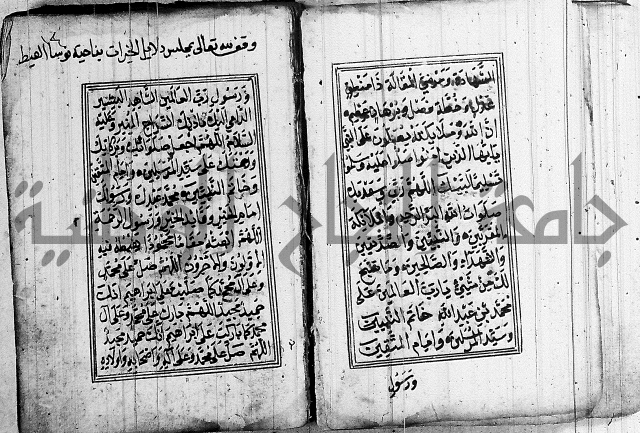 الشهادة ومرضي المقالة ذا منطق
عدل وخطة فصل وبرهان عظيم
ان الله وملائكته يصلون على النبي
يايها الذين امنوا صلوا عليه وسلموا
تسليما لبيك اللهم ربي وسعديك
صلوات الله البر الرحيم والملائكة
المقربين والنبيين والصديقين
والشهداء والصالحين وما سبح
لك من شيء يا رب العالمين على
محمد بن عبد الله خاتم النبيين
وسيد المرسلين وامام المتقين
ورسول
وقف لله تعالى بمجلس دلايل الخيرات بناحية نوسا الغيط
ورسول رب العالمين الشاهد البشير
الداعي اليك باذنك السراج المنير وعليه
السلام اللهم اجعل صلواتك وبركاتك
ورحمتك على سيد المرسلين وامام المتقين
وخاتم النبيين محمد عبدك ورسولك
امام الخير وقائد الخير ورسول الرحمة
اللهم ابعثه مقاما محمودا يغبطه فيه
الاولون والاخرون اللهم صل على محمد
وعلى ال محمد كما صليت على ابراهيم انك
حميد مجيد اللهم بارك على محمد وعلى ال
محمد كما باركت على ابراهيم انك حميد مجيد
اللهم صل على محمد وعلى اله واصحابه واولاده
جامعة النجاح الوطنية